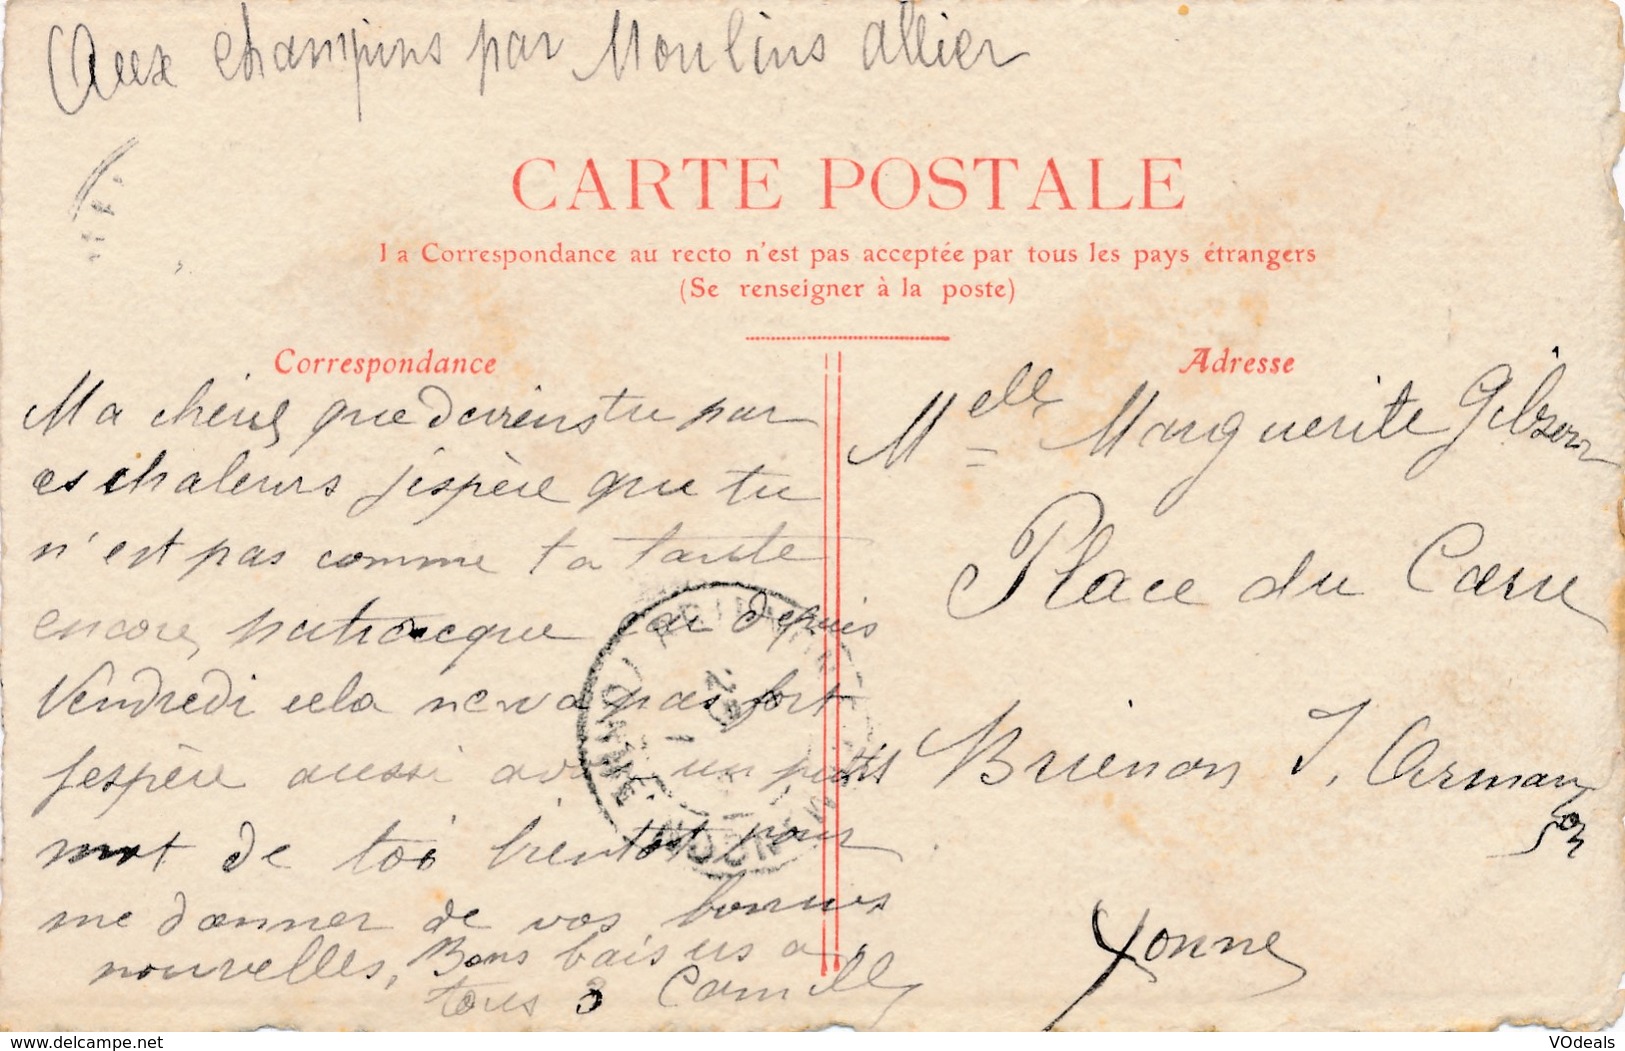 Aux champins par Moulins allier
CARTE POSTALE
La Correspondance au recto n'est pas acceptée par tous les pays étrangers
(Se renseigner à la poste)
Correspondance
Adresse
Ma chérie que deviens tu par
ces chaleurs j'espère que tu
n'est pas comme ta tante
encore, patraque car depuis
Vendredi cela ne va pas fort
j'espère aussi avoir un petit
mot de toi bientôt pour
me donner de vos bonnes
nouvelles, Bons baisers a
tous 3 Camille
Melle Marguerite Gibson
Place du Carre
Brienon S. Armançon
Yonne
VOdeals
www.delcampe.net